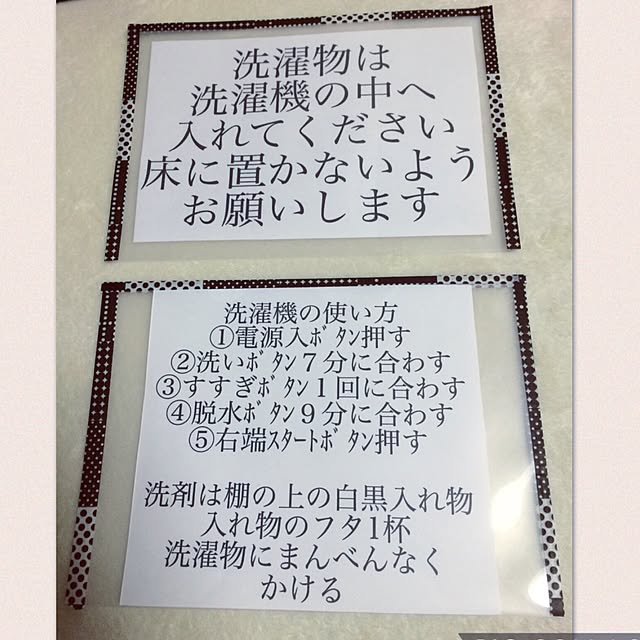 洗濯物は
洗濯機の中へ
入れてください
床に置かないよう
お願いします
洗濯機の使い方
①電源入ﾎﾞﾀﾝ押す
②洗いﾎﾞﾀﾝ７分に合わす
③すすぎﾎﾞﾀﾝ１回に合わす
④脱水ﾎﾞﾀﾝ９分に合わす
⑤右端ｽﾀｰﾄﾎﾞﾀﾝ押す
洗剤は棚の上の白黒入れ物
入れ物のフタ1杯
洗濯物にまんべんなく
かける